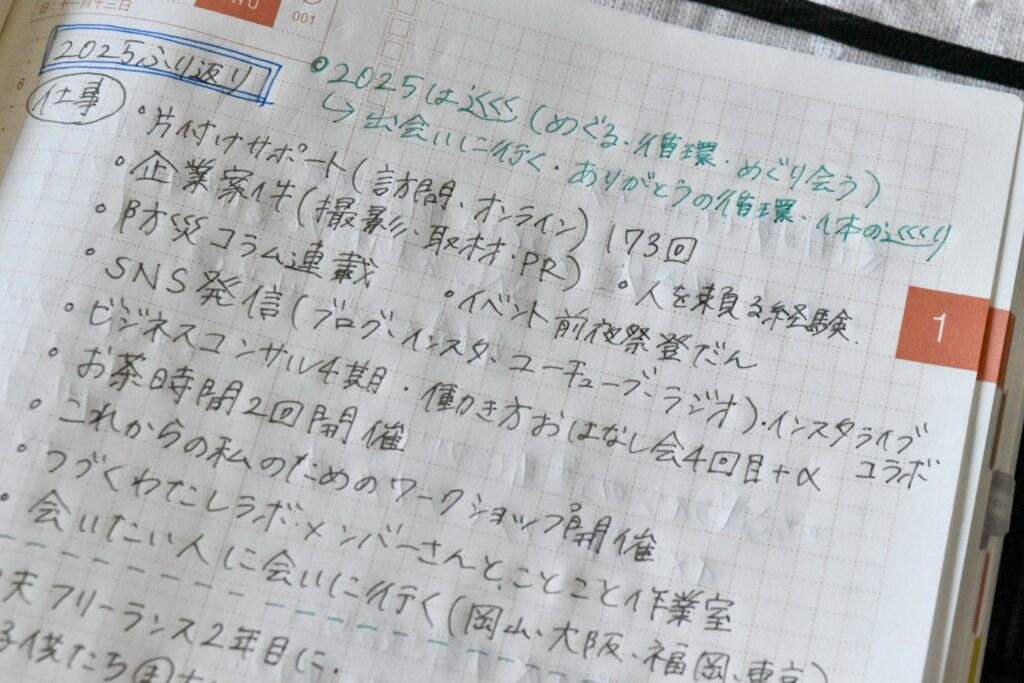 旧:十一月十三日
001
6
2025ふり返り
◦2025は巡(めぐる・循環・めぐり会う)
↳出会いに行く・ありがとうの循環・1本の巡り
仕事
◦片付けサポート(訪問、オンライン)173回
◦企業案件(撮影、取材・PR)
◦人を頼る経験.
◦防災コラム連載
◦イベント前夜祭登だん
◦SNS発信(ブログ、インスタ、ユーチューブ、ラジオ)・インスタライブコラボ
◦ビジネスコンサル4期・働き方おはなし会4回目+α
◦お茶時間2回開催
◦これからの私のためのワークショップ開催
◦つづくわたしラボ・メンバーさんと、ことこと作業室
◦会いたい人に会いに行く(岡山、大阪、福岡、東京)
夫フリーランス2年目に.
子供たち
1